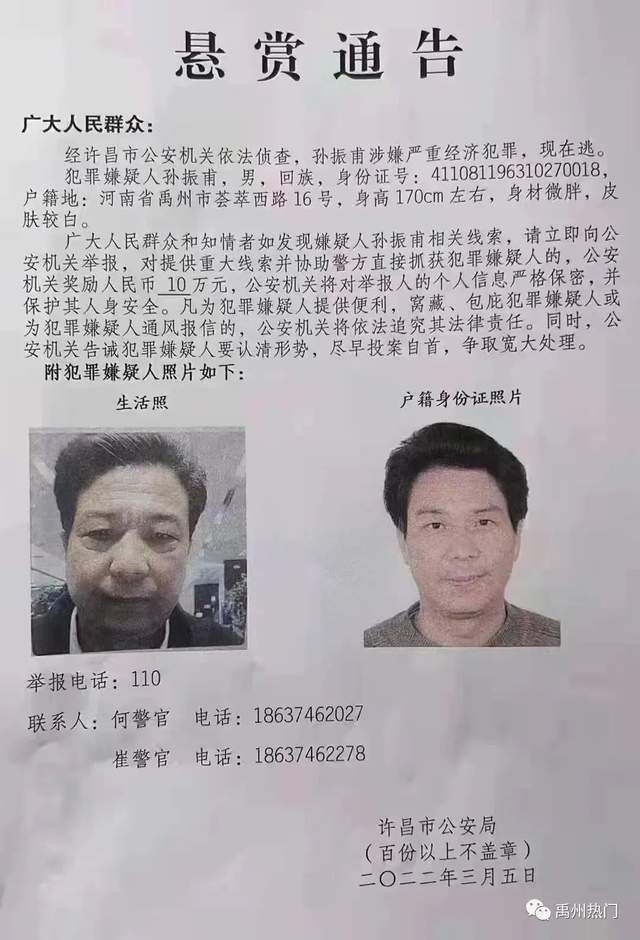 悬赏通告
广大人民群众：
经许昌市公安机关依法侦查，孙振甫涉嫌严重经济犯罪，现在逃。
犯罪嫌疑人孙振甫，男，回族，身份证号：411081196310270018，
户籍地：河南省禹州市荟萃西路16号，身高170cm左右，身材微胖，皮
肤较白。
广大人民群众和知情者如发现嫌疑人孙振甫相关线索，请立即向公
安机关举报，对提供重大线索并协助警方直接抓获犯罪嫌疑人的，公安
机关奖励人民币 10 万元，公安机关将对举报人的个人信息严格保密，并
保护其人身安全。凡为犯罪嫌疑人提供便利，窝藏、包庇犯罪嫌疑人或
为犯罪嫌疑人通风报信的，公安机关将依法追究其法律责任。同时，公
安机关告诫犯罪嫌疑人要认清形势，尽早投案自首，争取宽大处理。
附犯罪嫌疑人照片如下：
生活照 户籍身份证照片
举报电话：110
联系人：何警官 电话：18637462027
崔警官 电话：18637462278
许昌市公安局
（百份以上不盖章）
二〇二二年三月五日
禹州热门